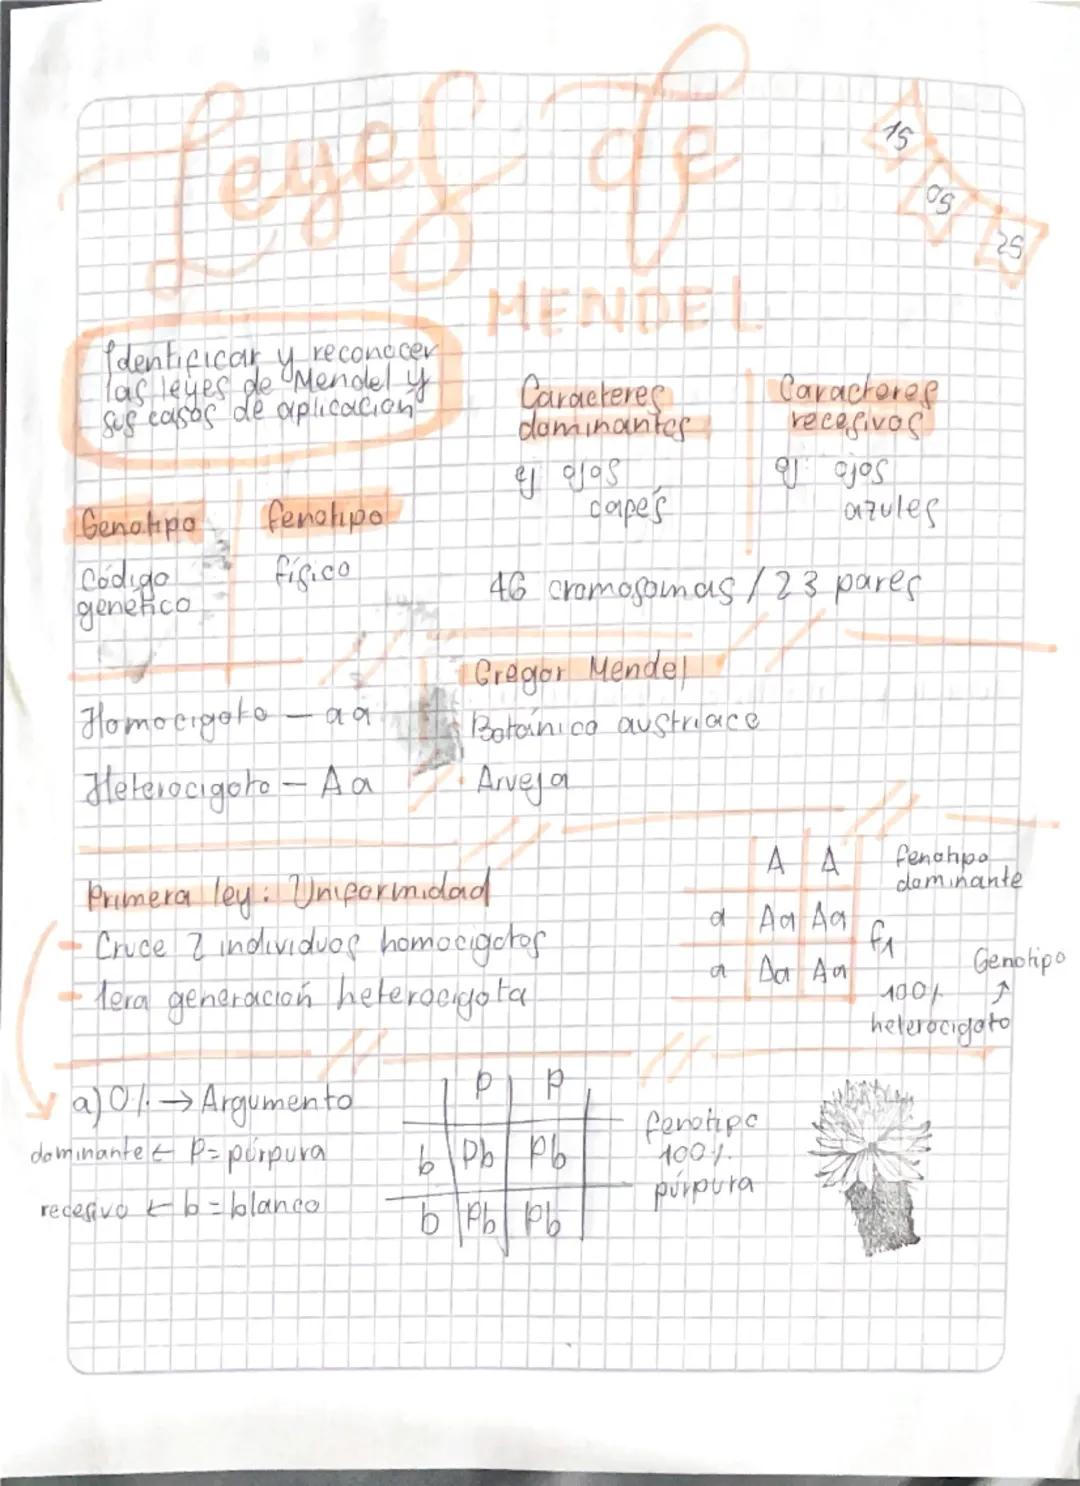 Leyes de
MENDEL
15
05
25
Identificar y reconocer
las leyes de Mendel y
sus casos de aplicación
Caracteres
dominantes
ej ojos
capés
Caracteres
recesivos
ej: ojos
azules
Genotipo
Código
genético
fenotipo
físico
46 cromosomas / 23 pares
Homocigoto — aa
Heterocigoto — Aa
Gregor Mendel
Botánico austriaco
· Arveja
Primera ley: Uniformidad
- Cruce 2 individuos homocigotos
- 1era generación heterocigota
A A
a Aa Aa
a Aa Aa
fenotipo
dominante
f1
100%
heterocigoto
Genotipo
↑
a) 0% → Argumento
dominante ← P = púrpura
recesivo ← b = blanco
P P
b Pb Pb
b Pb Pb
fenotipo
100%
púrpura